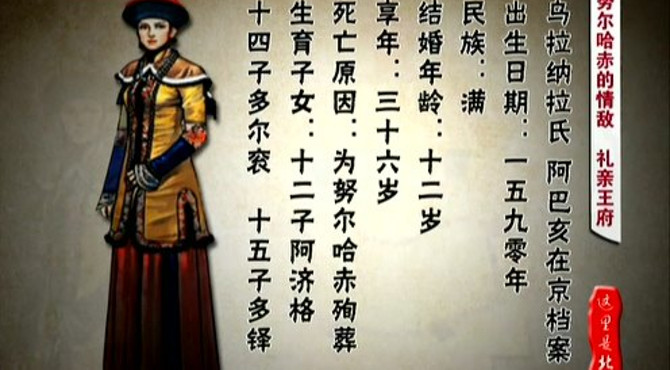 乌拉纳拉氏 阿巴亥在京档案
出生日期：一五九零年
民族：满
结婚年龄：十二岁
享年：三十六岁
死亡原因：为努尔哈赤殉葬
生育子女：十二子阿济格
十四子多尔衮 十五子多铎
努尔哈赤的情敌 礼亲王府
这里是北